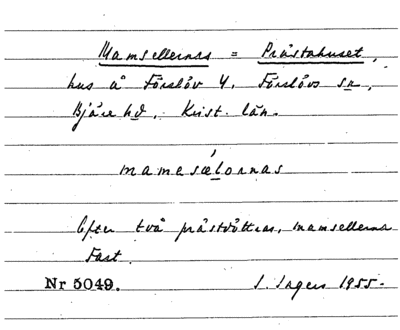 Mamsellernas = Prästahuset,
hus å Förslöv 4, Förslövs sn,
Bjäre hd, Krist. län.
mamesælornas
Efter två prästdöttrar, mamsellerna
Fast.
Nr 5049. I. Ingers 1955.